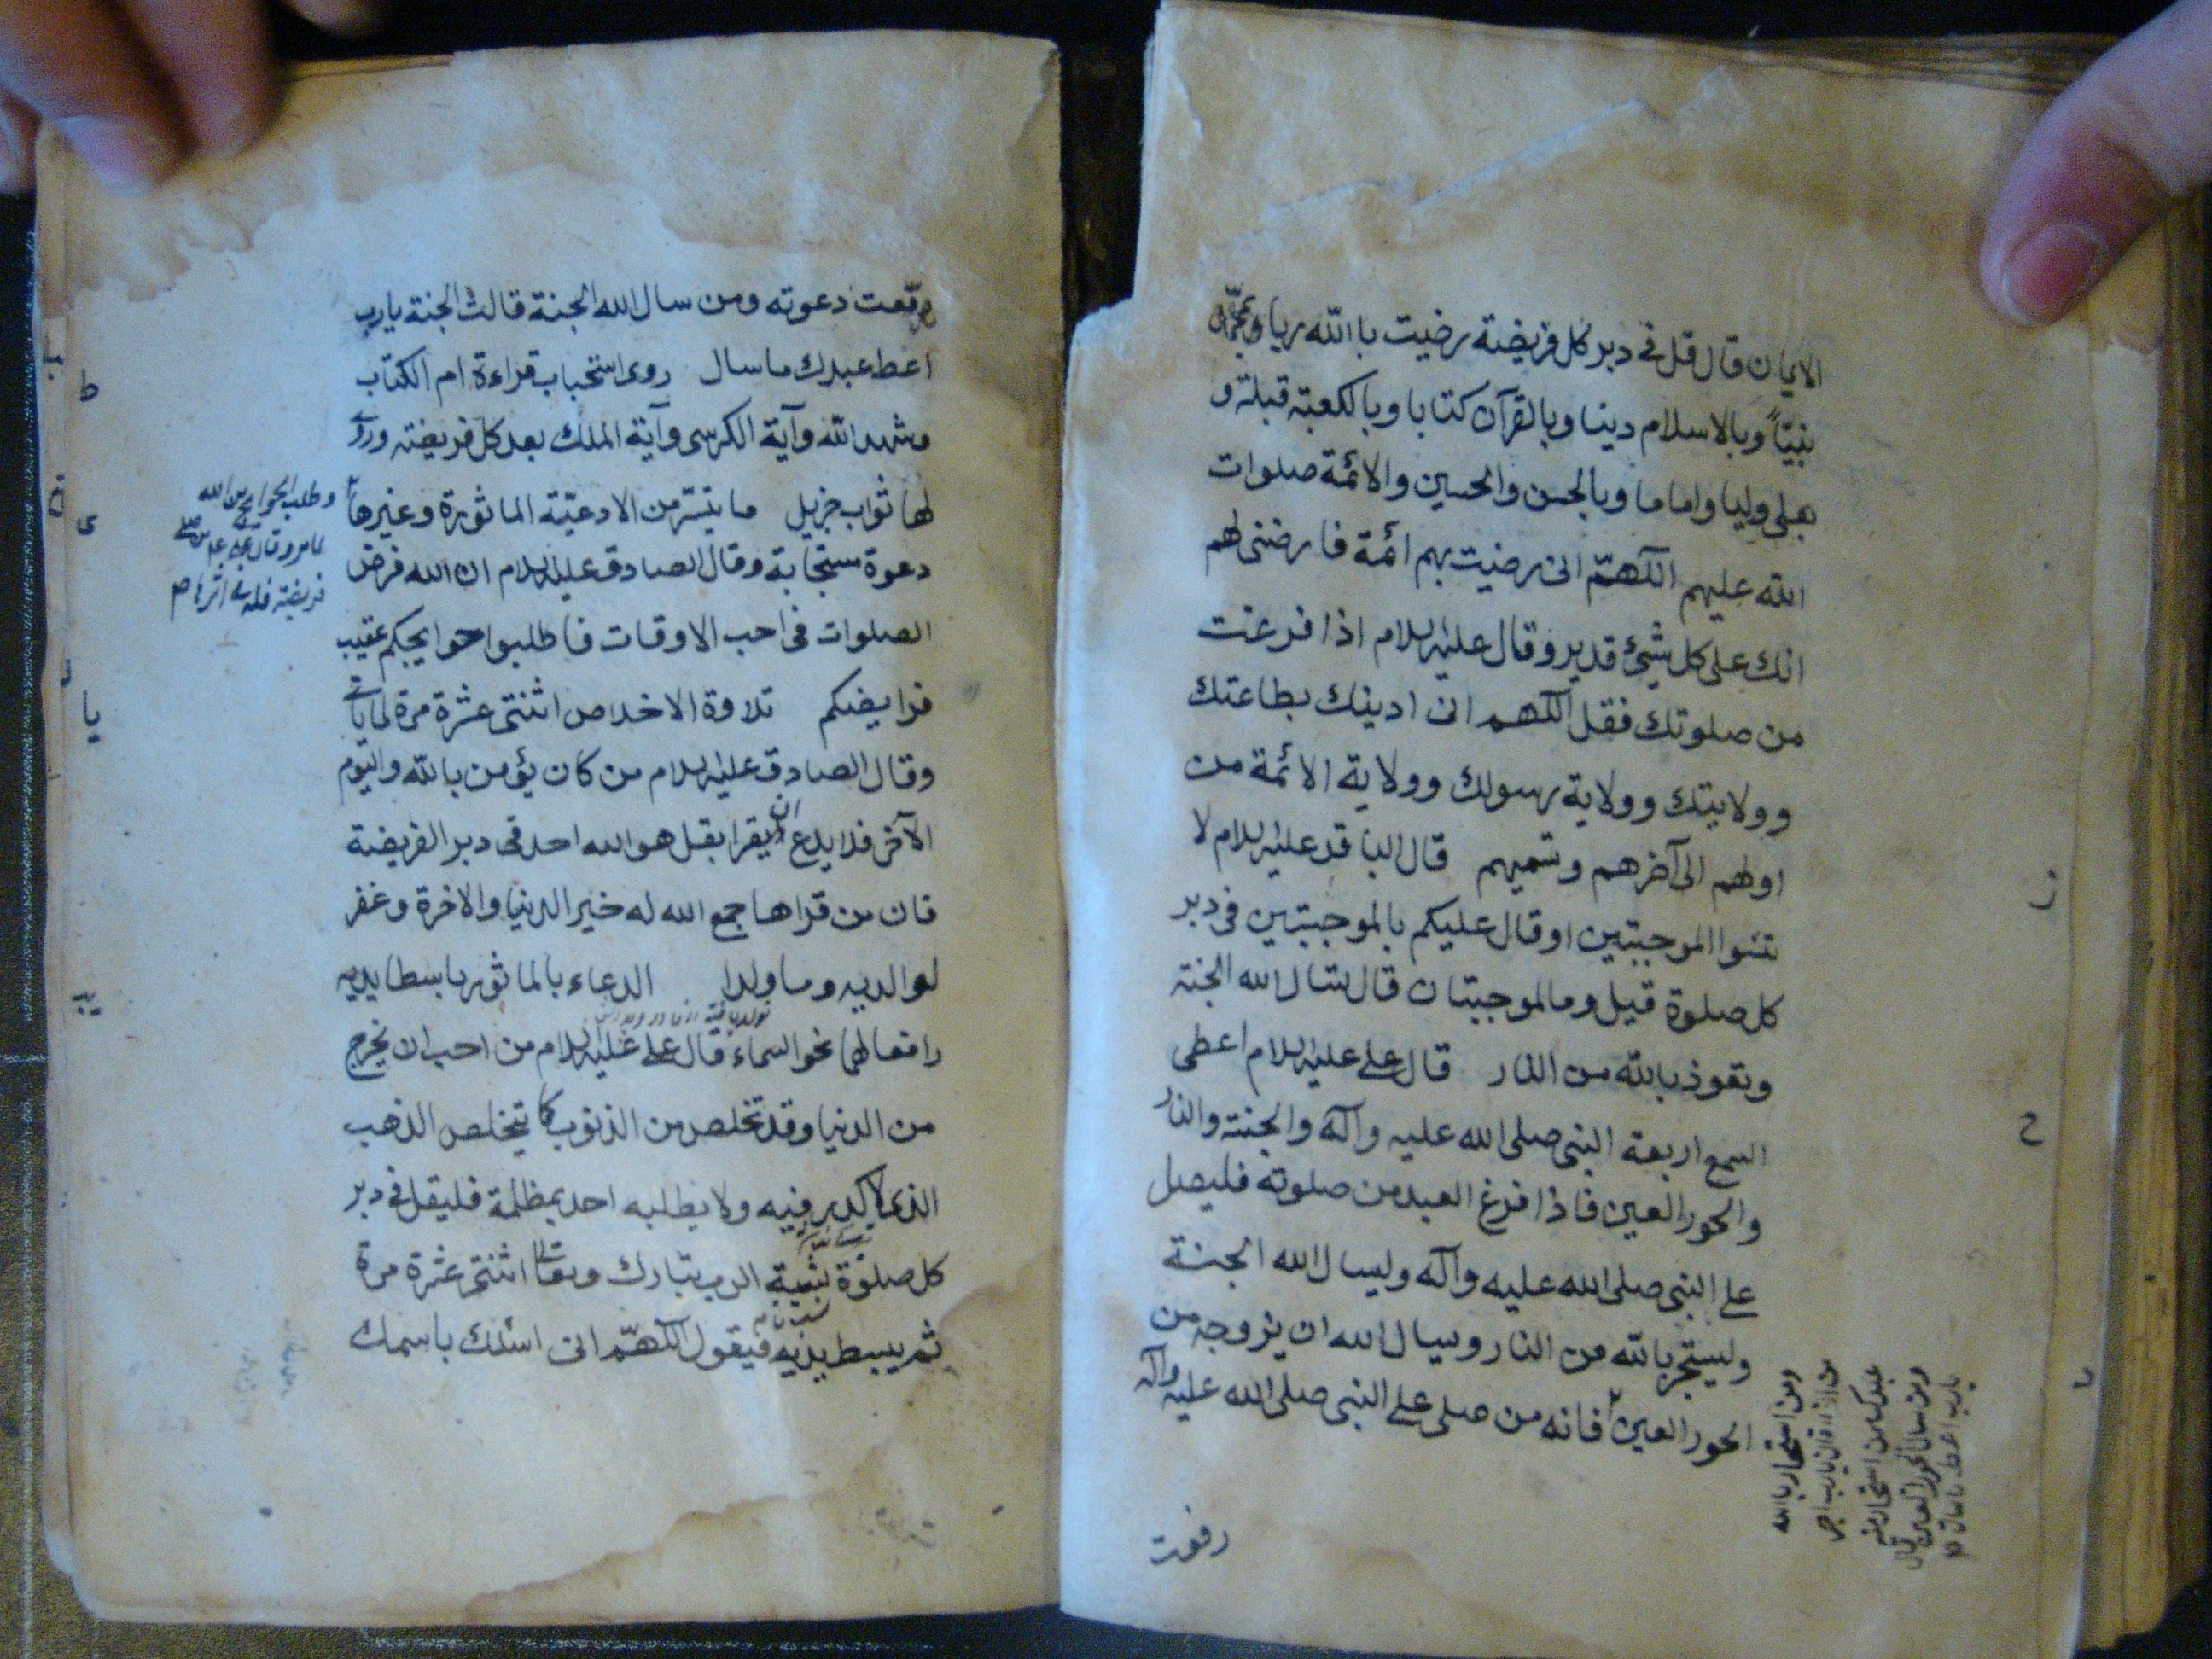 الايمان قال قل في دبر كل فريضة رضيت باالله ربا وبمحمد
نبيّاً وبالاسلام دينا وبالقرآن كتابا وبالكعبة قبلة و
بعلى وليا واماما وبالحسن والحسين والائمة صلوات
الله عليهم اللهمّ انى رضيت بهم ائمة فارضنى لهم
انك على كل شيئ قدير وقال عليه السلام اذا فرغت
من صلوتك فقل اللهم انى ادينك بطاعتك
وولايتك وولاية رسولك وولاية الائمة من
اولهم الى آخرهم وتسميهم قال الباقر عليه السلام لا
تنسوا الموجبتين او قال عليكم بالموجبتين في دبر
كل صلوة قيل وما الموجبتان قال تسال الله الجنة
وتعوذ بالله من النار قال على عليه السلام اعطى
السمع اربعة النبى صلى الله عليه وآله والجنة والنار
والحور العين فاذا فرغ العبد من صلوته فليصل
على النبى صلى الله عليه وآله وليسال الله الجنة
وليستجر بالله من النار ويسال الله ان يزوجه من
الحور العين فانه من صلى على النبى صلى الله عليه وآله
ومن استجار باالله
من النار قالت يا رب اجر
عبدك مما استجار منه
ومن سال الحور العين قال
يا رب اعط ما سال
رفعت
ز
ح
رفعت دعوته ومن سال الله الجنة قالت الجنة يا رب
اعط عبدك ما سال روى استحباب قراءة ام الكتاب
وشهد الله وآية الكرسى وآية الملك بعد كل فريضة وروى
لها ثواب جزيل ما يتيسّر من الادعيّة الماثورة وغيرها
دعوة مستجابة وقال الصادق عليه السلام ان الله فرض
الصلوات في احب الاوقات فاطلبوا حوايجكم عقيب
فرايضكم تلاوة الاخلاص اثنتى عشرة مرة لما ياتى
وقال الصادق عليه السلام من كان يؤمن بالله واليوم
الآخر فلا يدع ان يقرا بقل هو الله احد في دبر الفريضة
فان من قراها جمع الله له خير الدنيا والاخرة وغفر
لوالديه وما ولدا الدعاء بالماثور باسطا يديه
رافعا لهما نحو السماء قال على عليه السلام من احب ان يخرج
من الدنيا وقد تخلص من الذنوب كما يتخلص الذهب
الذى لا كدر فيه ولا يطلبه احد بمظلمة فليقل في دبر
كل صلوة نسبة الرب تبارك وتعالى اثنتى عشرة مرة
ثم يبسط يديه فيقول اللهمّ انى اسئلك باسمك
وطلب الحوايج من الله
لما مر وقال من صلى
فريضة فله في اثرها
ط
ى
يا
يب